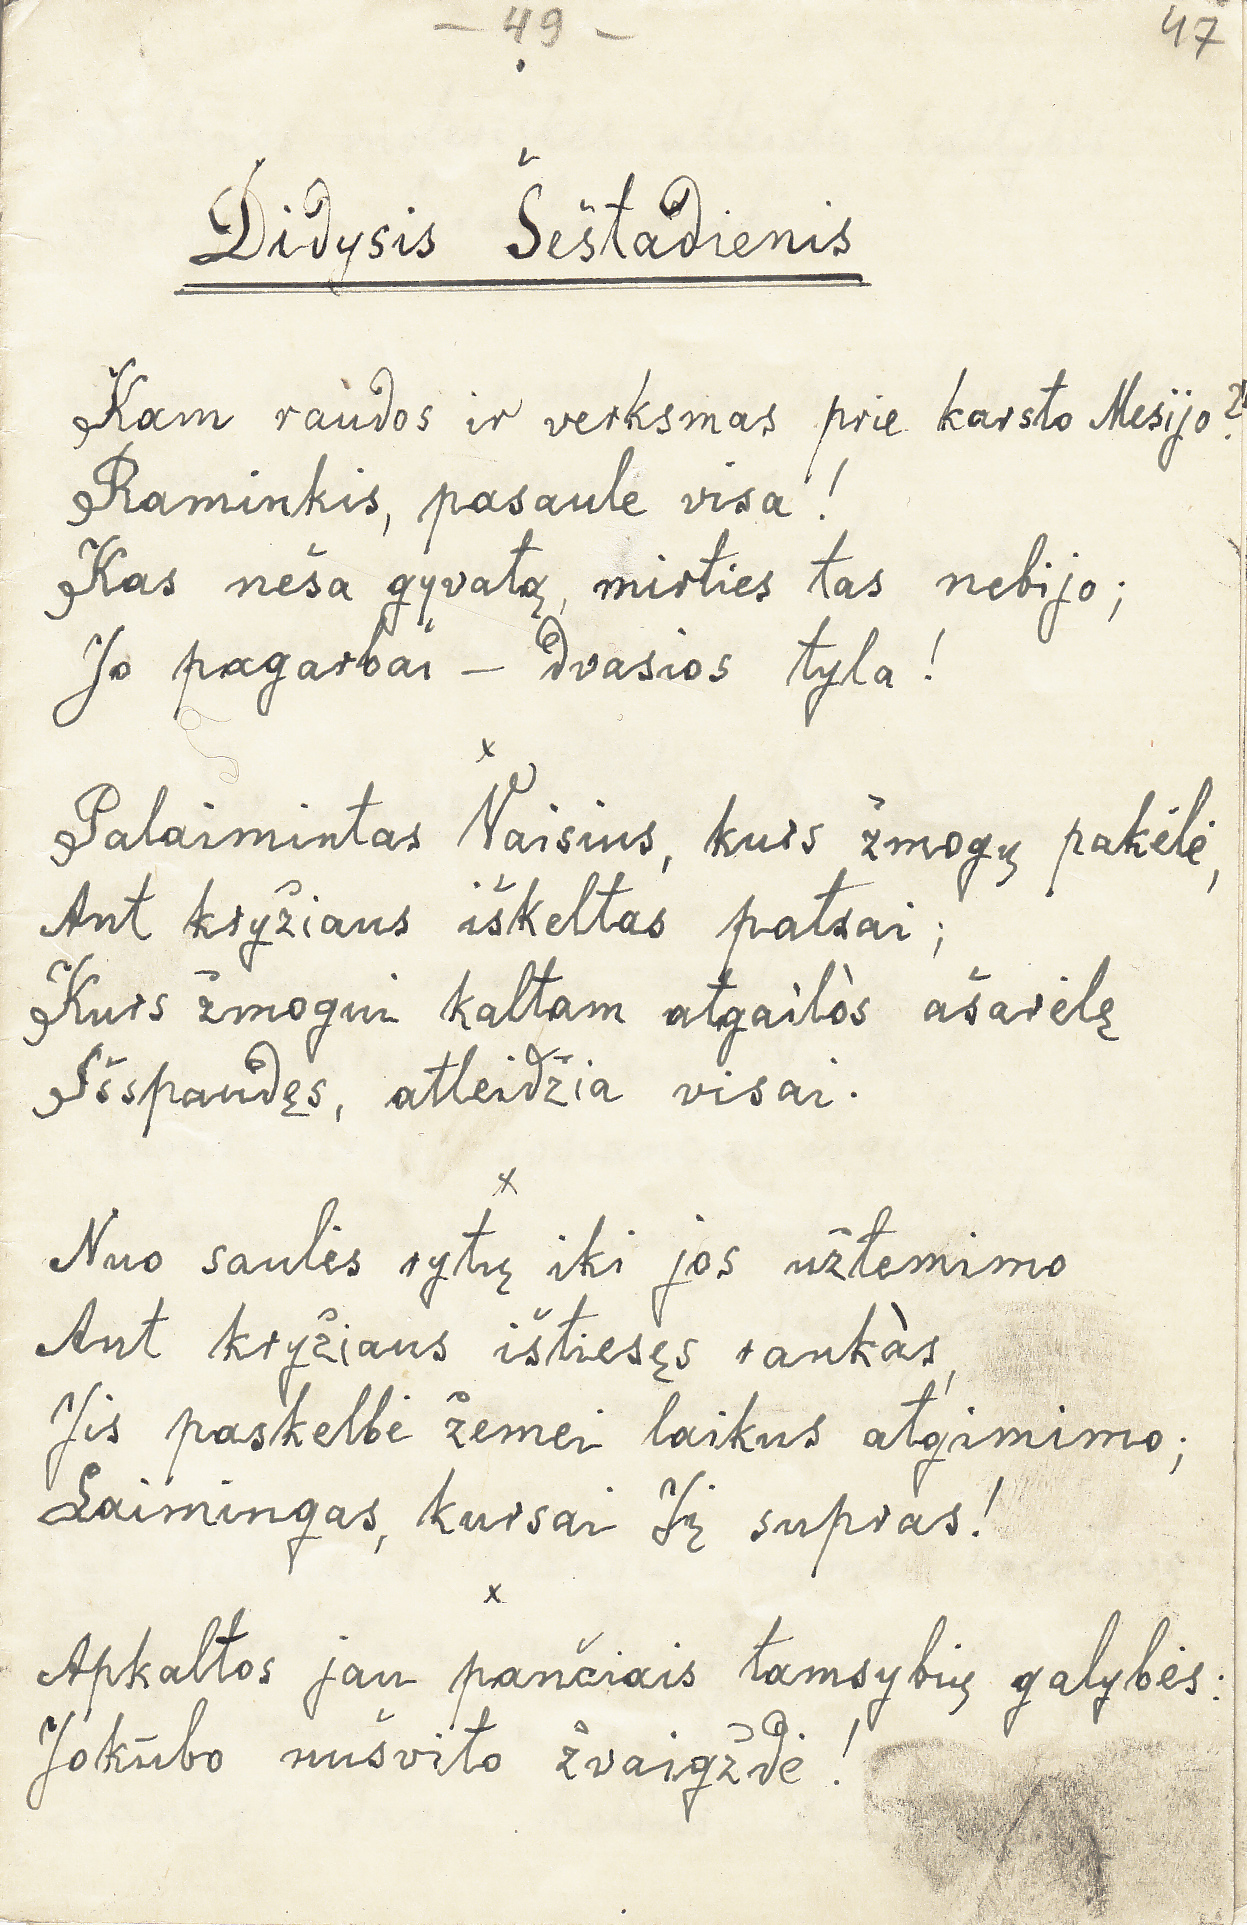 – 49 –
47
Didysis Šeštadienis
Kam raudos ir verksmas prie karsto Mesijo?
Raminkis, pasaule visa!
Kas neša gyvatą, mirties tas nebijo;
Jo pagarbai – dvasios tyla!
x
Palaimintas Vaisius, kurs žmogų pakėlė,
Ant kryžiaus iškeltas patsai;
Kurs žmogui kaltam atgailòs ašarėlę
Išspaudęs, atleidžia visai.
x
Nuo saulės rytų iki jos užtemimo
Ant kryžiaus ištiesęs rankàs,
Jis paskelbė žemei laikus atgimimo;
Laimingas, kursai Jį supras!
x
Apkaltos jau pančiais tamsybių galybės:
Jokūbo nušvito žvaigždė!